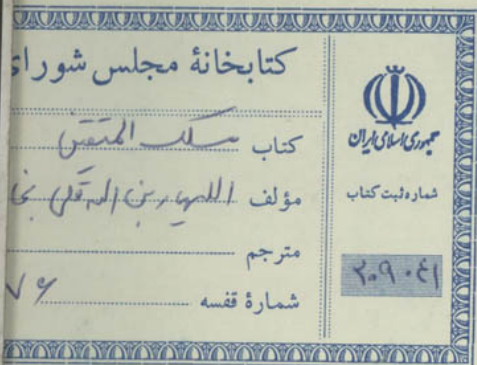 کتابخانهٔ مجلس شورای
کتاب مسلک المتقین
مؤلف اللهیار بن الله قلی بخا
مترجم
شمارهٔ قفسه ۷۶
جمهوری اسلامی ایران
شماره ثبت کتاب
۲۰۹۰۴۱